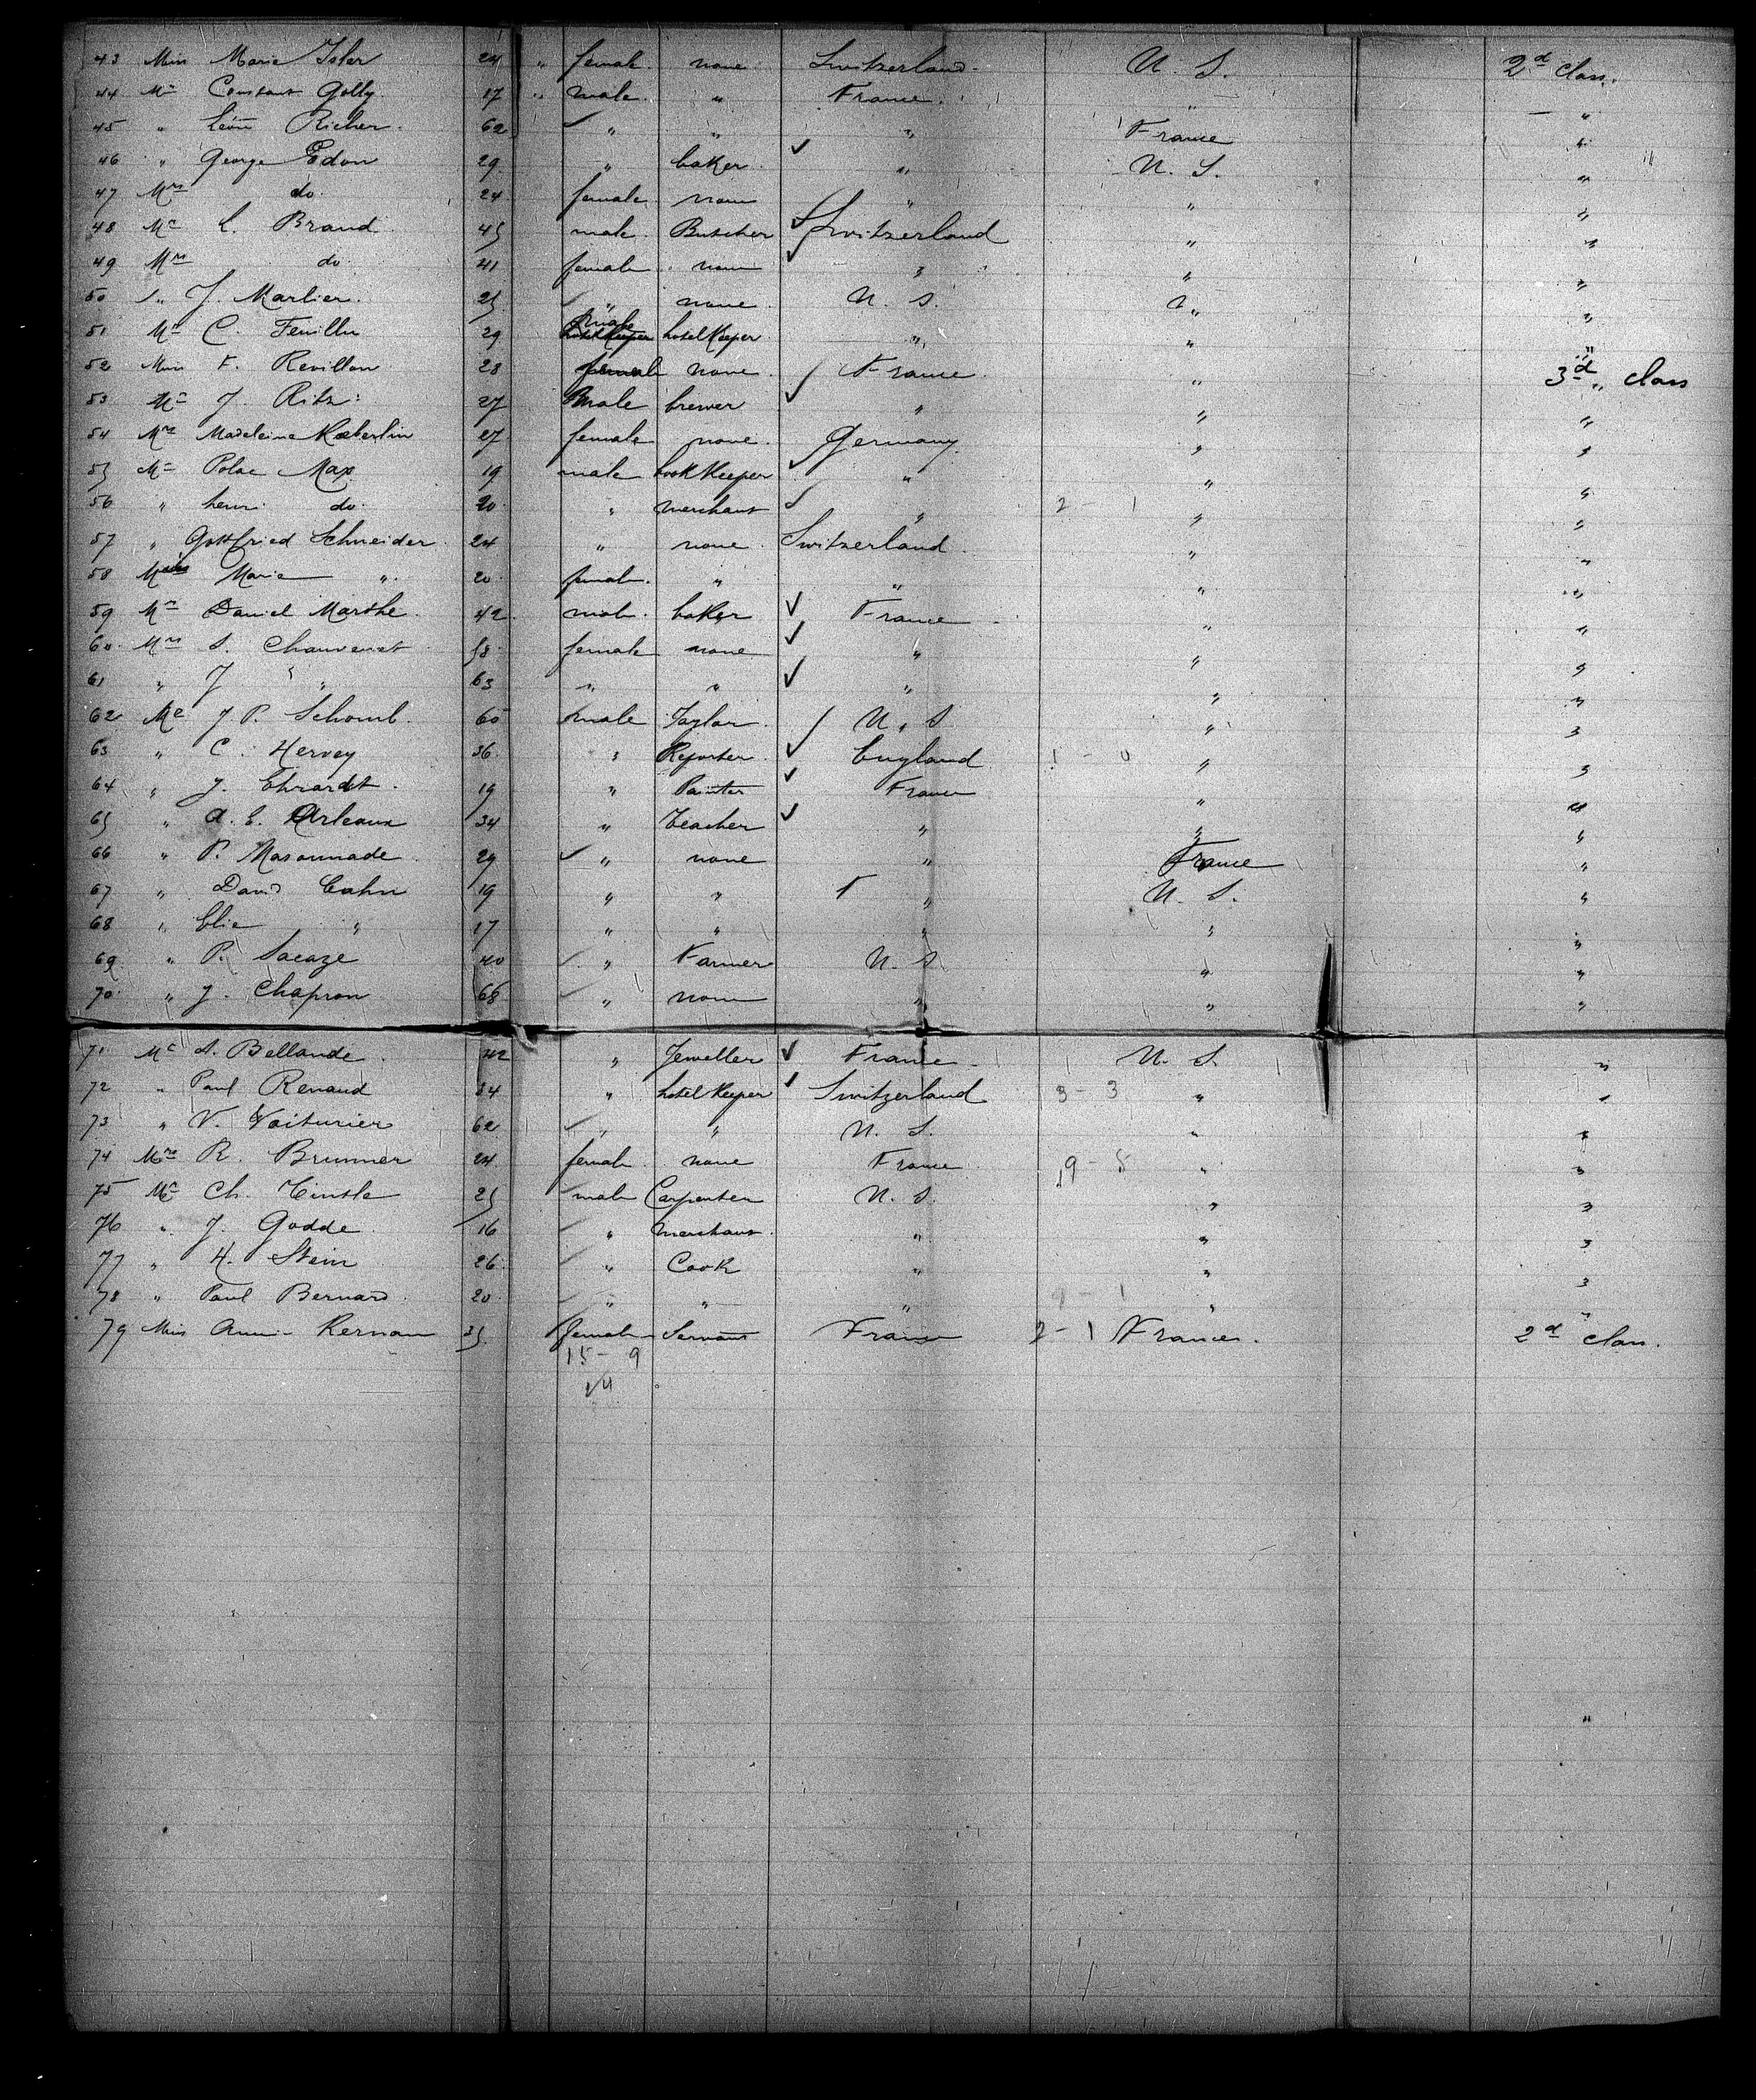 43 Miss Marie Isler 24 " female. none Switzerland. U. S. 2d class.
44 Mr Constant Golly. 17 " male. " France. " "
45 " Léon Richer. 62 " " " France "
46 " George Godon 29 " baker. " U. S. "
47 Mrs do. 24. female none " " "
48 Mr E. Brand. 45 male. Butcher Switzerland " "
49 Mrs do 41 female none " " "
50 " J. Marlier. 25 " none. U. S. " "
51 Mr C. Feuillu 29 male hotel Keeper " " "
52 Miss F. Revillon 28 female none. France. " 3d class
53 Mr J. Ritz 27 Male brewer " " "
54 Mrs Madeleine Kaeberlin 27 female none. Germany. " "
55 Mr Polac Max 19 male book Keeper " " "
56 " henri do. 20 " merchant " 2 - 1 " "
57 " Gottfried Schneider 24 " none. Switzerland. " "
58 Marie " 20. female. " " " "
59 Mr Daniel Marthe. 42 male. baker France " "
60. Mrs S. Chauvenet 58 female none " " "
61 " J " 63 " " " " "
62 Mr J. P. Schomb. 60 male Taylor. U. S " "
63 " C. Hervey 36. " Reporter. England 1 - 0 " "
64 " J. Ehrardt. 19 " Painter France " "
65 " A. E. Arleaux 34 " Teacher " " "
66 " P. Masounade 29 " none " France "
67 " David Cahn 19 " " " U. S. "
68 " Elie " 17 " " " " "
69 " P. Sacaze 40 " Farmer U. S " "
70. " J. Chapron 68 " none " " "
71 Mr A. Bellande. 42 " Jeweller France U. S. "
72 " Paul Renaud 34 " hotel Keeper Switzerland 3 - 3 " "
73 " V. Voiturier 62 " " U. S. " "
74 Mrs R. Brunner 24 female. none France 19 - 5 " "
75 Mr Ch. 25 male Carpenter U. S. " "
76 " J. Godde 16 " merchant. " " "
77 " H. Stein 26. " Cook " " "
78 " Paul Bernard. 20 " " " " "
79 Miss Annie Kernan 35. female Servant France 2 - 1 France. 2d class.
15 - 9
14
"